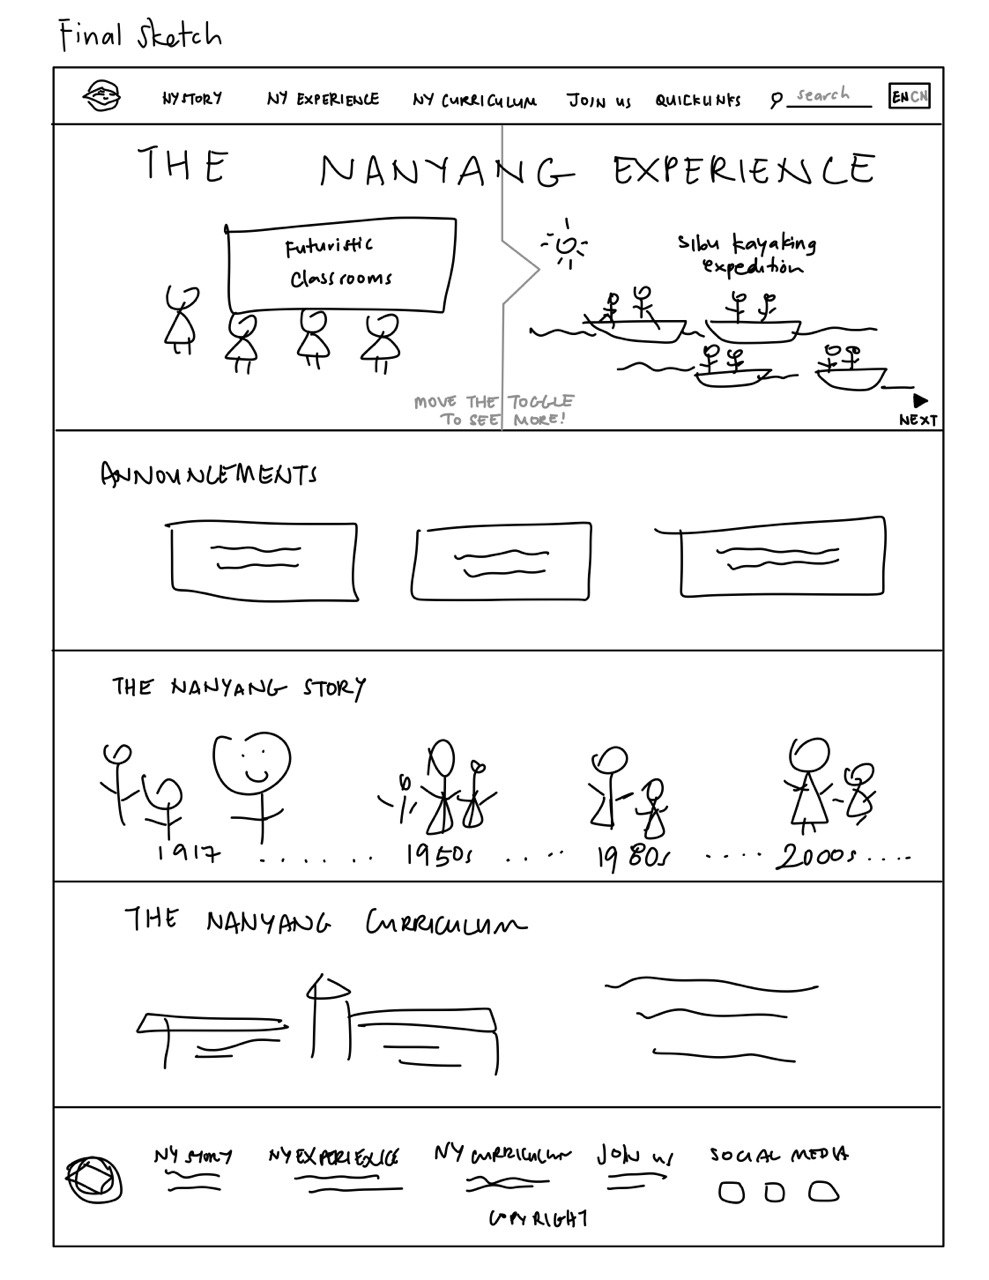 Final Sketch
NY STORY NY EXPERIENCE NY CURRICULUM JOIN US QUICKLINKS search EN CN
THE NANYANG EXPERIENCE
Futuristic
Classrooms
Sibu kayaking
expedition
MOVE THE TOGGLE
TO SEE MORE!
NEXT
ANNOUNCEMENTS
THE NANYANG STORY
1917 ...... 1950s .... 1980s .... 2000s ....
THE NANYANG CURRICULUM
NY STORY NY EXPERIENCE NY CURRICULUM JOIN US SOCIAL MEDIA
COPYRIGHT